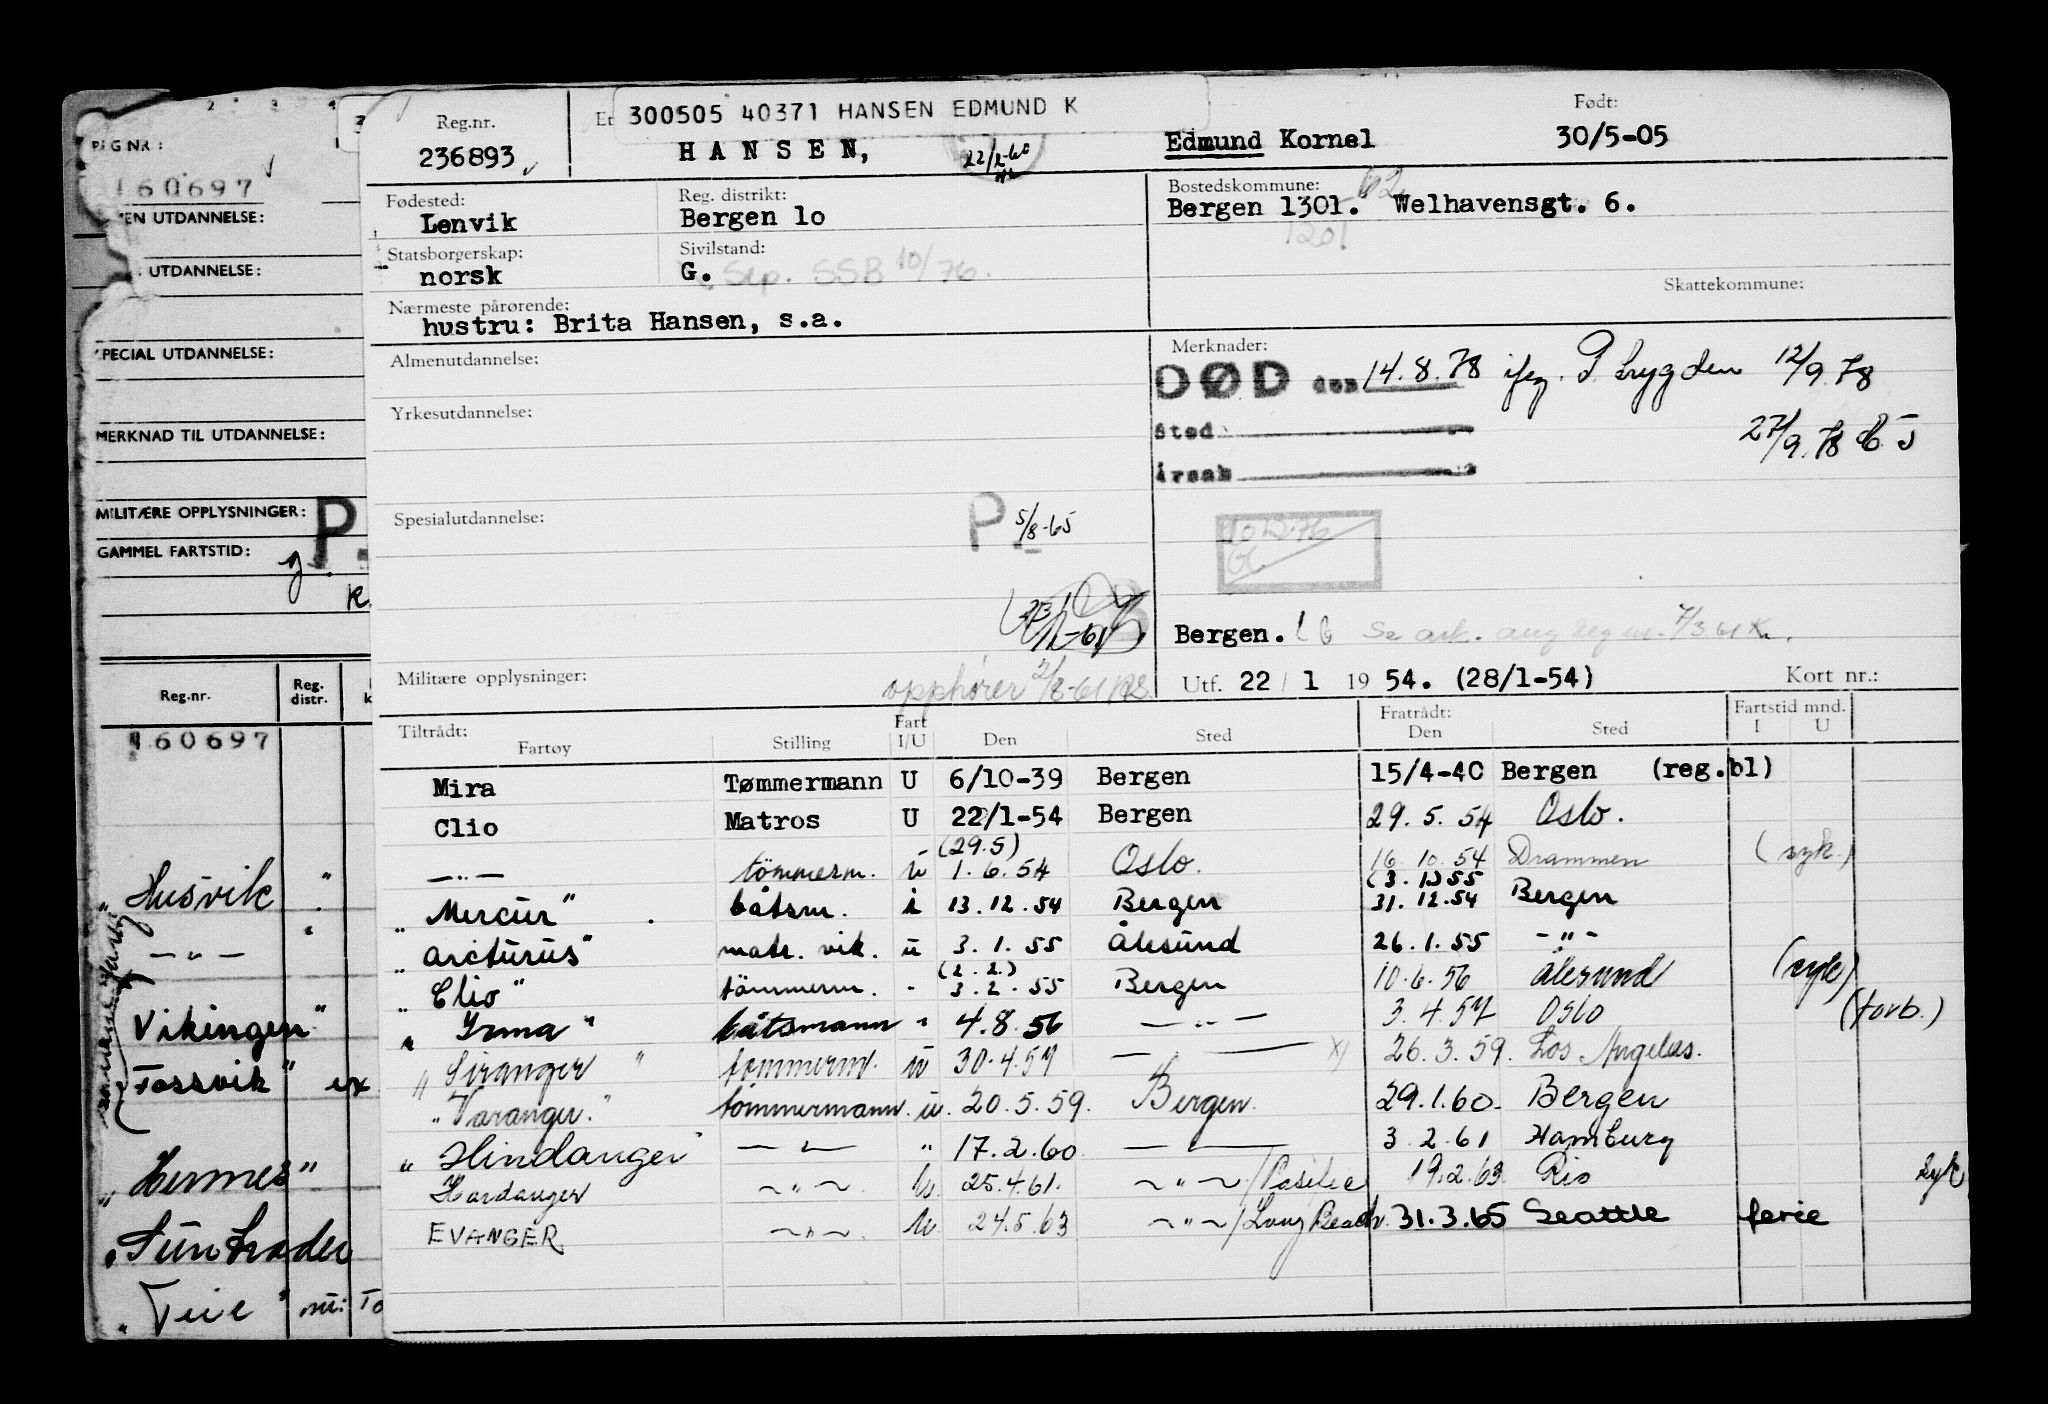 300505 40371 HANSEN EDMUND K
Reg.nr. 236893
HANSEN, 22/2-60 Edmund Kornel
Født: 30/5-05
Fødested: Lenvik
Reg. distrikt: Bergen 1o
Bostedskommune: 62
Bergen 1301. Welhavensgt. 6.
1201
Statsborgerskap: norsk
Sivilstand: G. Sep. SSB 10/76.
Skattekommune:
Nærmeste pårørende:
hustru: Brita Hansen, s.a.
Almenutdannelse:
Merknader:
DØD den 14.8.78 ifg. P. trygden 12/9.78
Yrkesutdannelse:
Sted
27/9.78
Årsak
Spesialutdannelse:
P. 5/8-65
Bergen.
Militære opplysninger:
opphører
Utf. 22/1 1954. (28/1-54) Kort nr.:
Tiltrådt: Fart Fratrådt: Fartstid mnd.
Fartøy Stilling I/U Den Sted Den Sted I U
Mira Tømmermann U 6/10-39 Bergen 15/4-40 Bergen (reg.bl)
Clio Matros U 22/1-54 Bergen 29.5.54 Oslo.
(29.5)
—"— tömmerm. u 1.6.54 Oslo. 16.10.54 Drammen (syk.)
(3.1.55
"Mercur" båtsm. i 13.12.54 Bergen 31.12.54 Bergen
"Arcturus" matr. vik. u 3.1.55 Ålesund 26.1.55 -"-
(2.2.)
"Clio" tömmerm. - 3.2.55 Bergen 10.6.56 Ålesund (syk)
"Irma" båtsmann " 4.8.56 —"— 3.4.57 Oslo (forb.)
"Siranger" tømmerm. u 30.4.57 —"— x) 26.3.59. Los Angeles.
"Varanger." tømmermann. u. 20.5.59. Bergen. 29.1.60. Bergen
"Hindanger" —"— " 17.2.60. —"— 3.2.61 Hamburg
Hardanger —"— u. 25.4.61. —"—/Pasific 19.2.63 Rio syk
EVANGER —"— u 24.5.63 —"—/Long Beach. 31.3.65 Seattle ferie
2 3 4
REG NR:
160697
UTDANNELSE:
UTDANNELSE:
SPECIAL UTDANNELSE:
MERKNAD TIL UTDANNELSE:
MILITÆRE OPPLYSNINGER: P.
GAMMEL FARTSTID:
g.
K.
Reg.nr. Reg. distr.
160697
"Husvik "
—"—
Vikingen"
Fossvik" ex
"Hermes"
"Suntrader
"Teie" nu: To